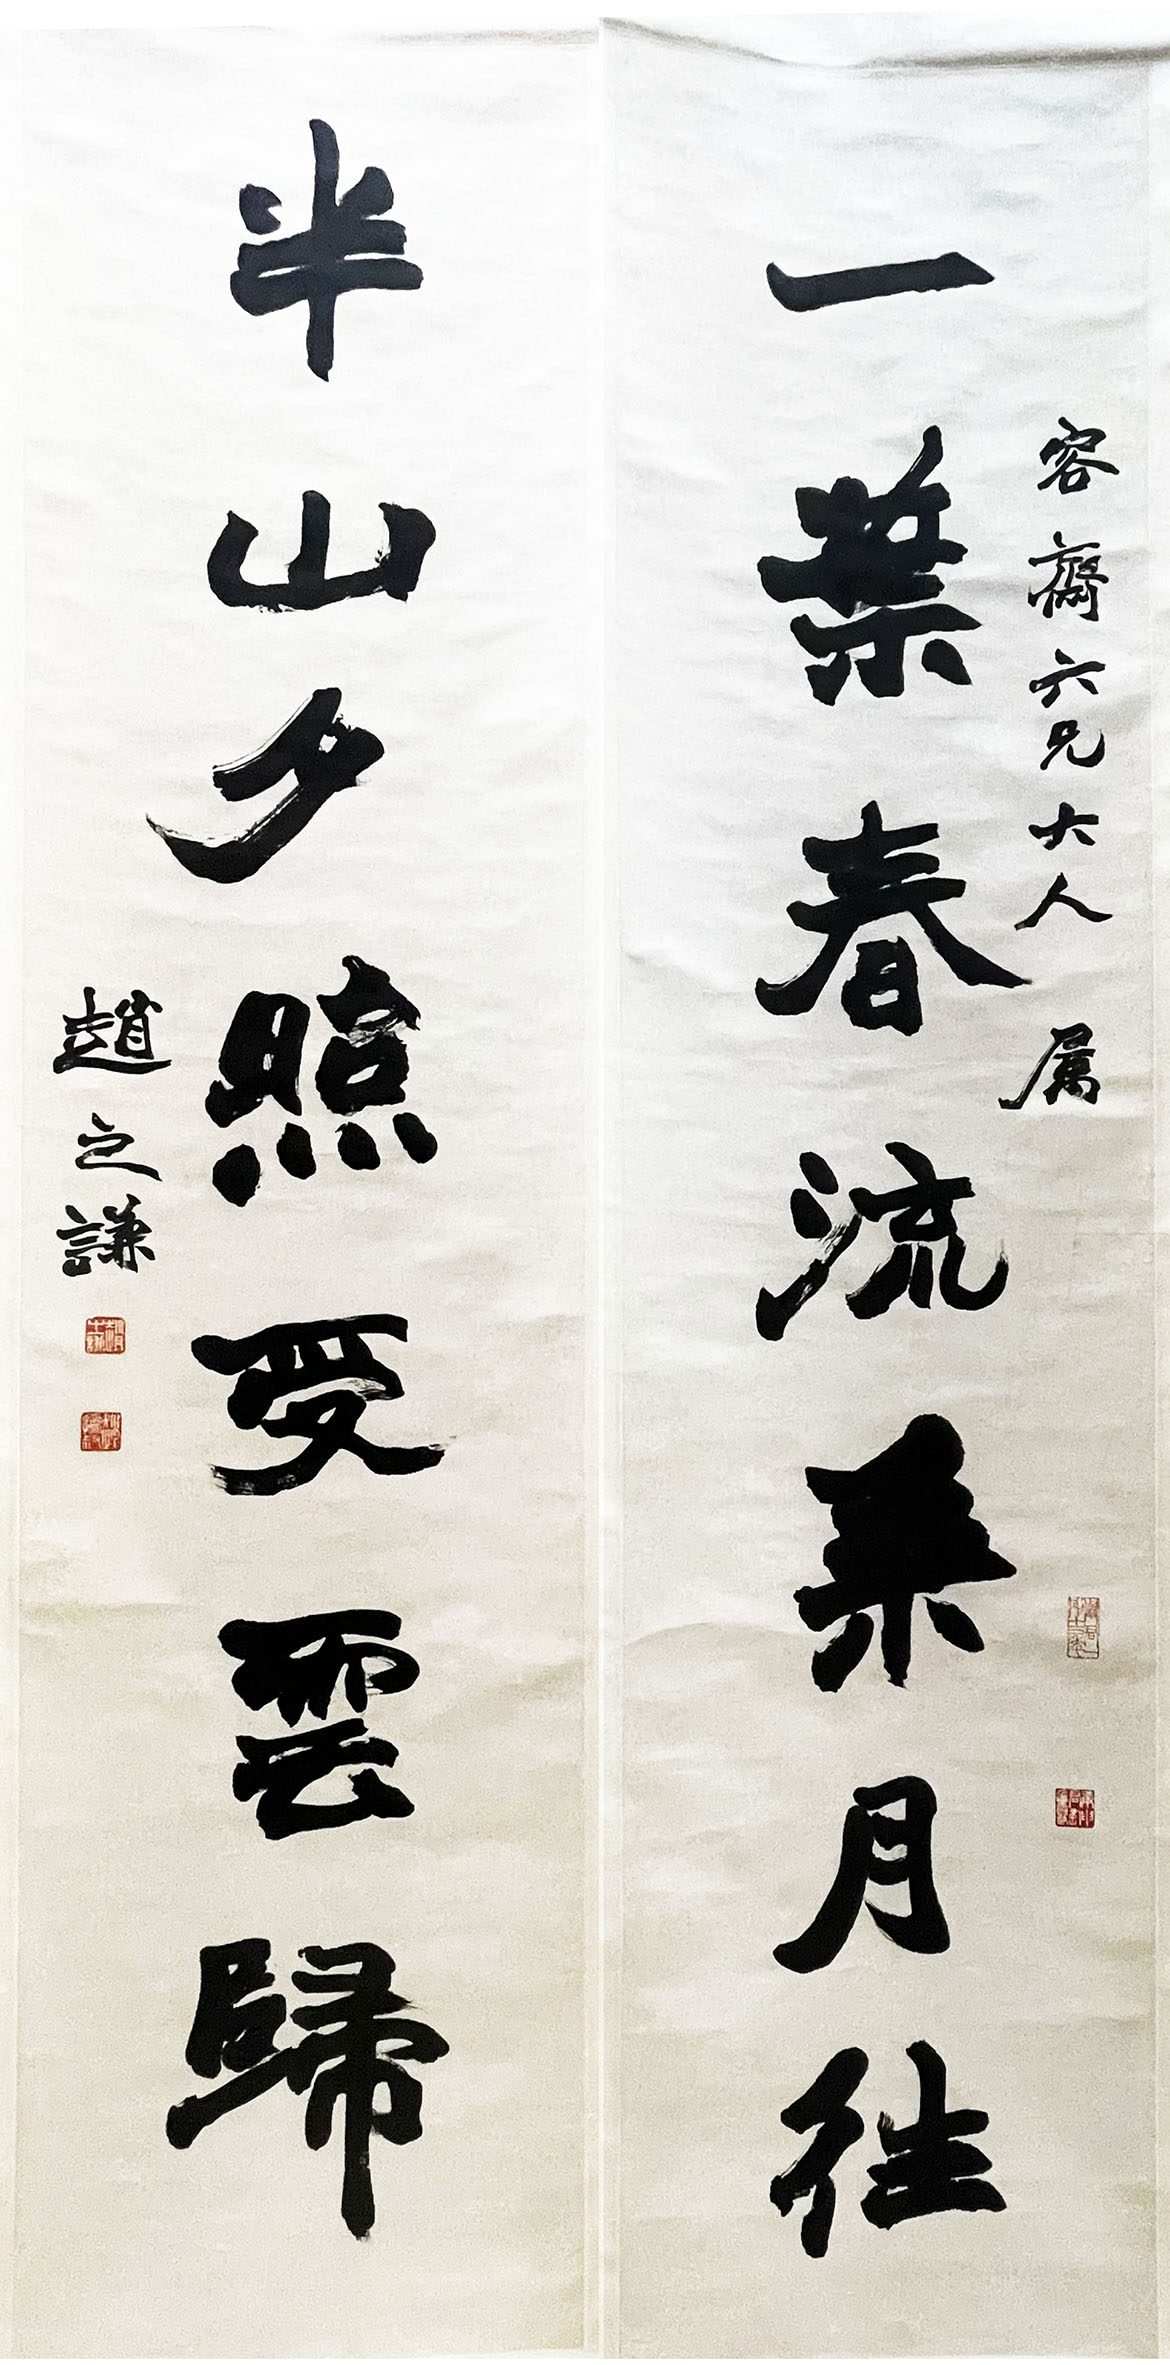 容齋六兄大人属
一葉春流乘月往
半山夕照受雲歸
趙之謙